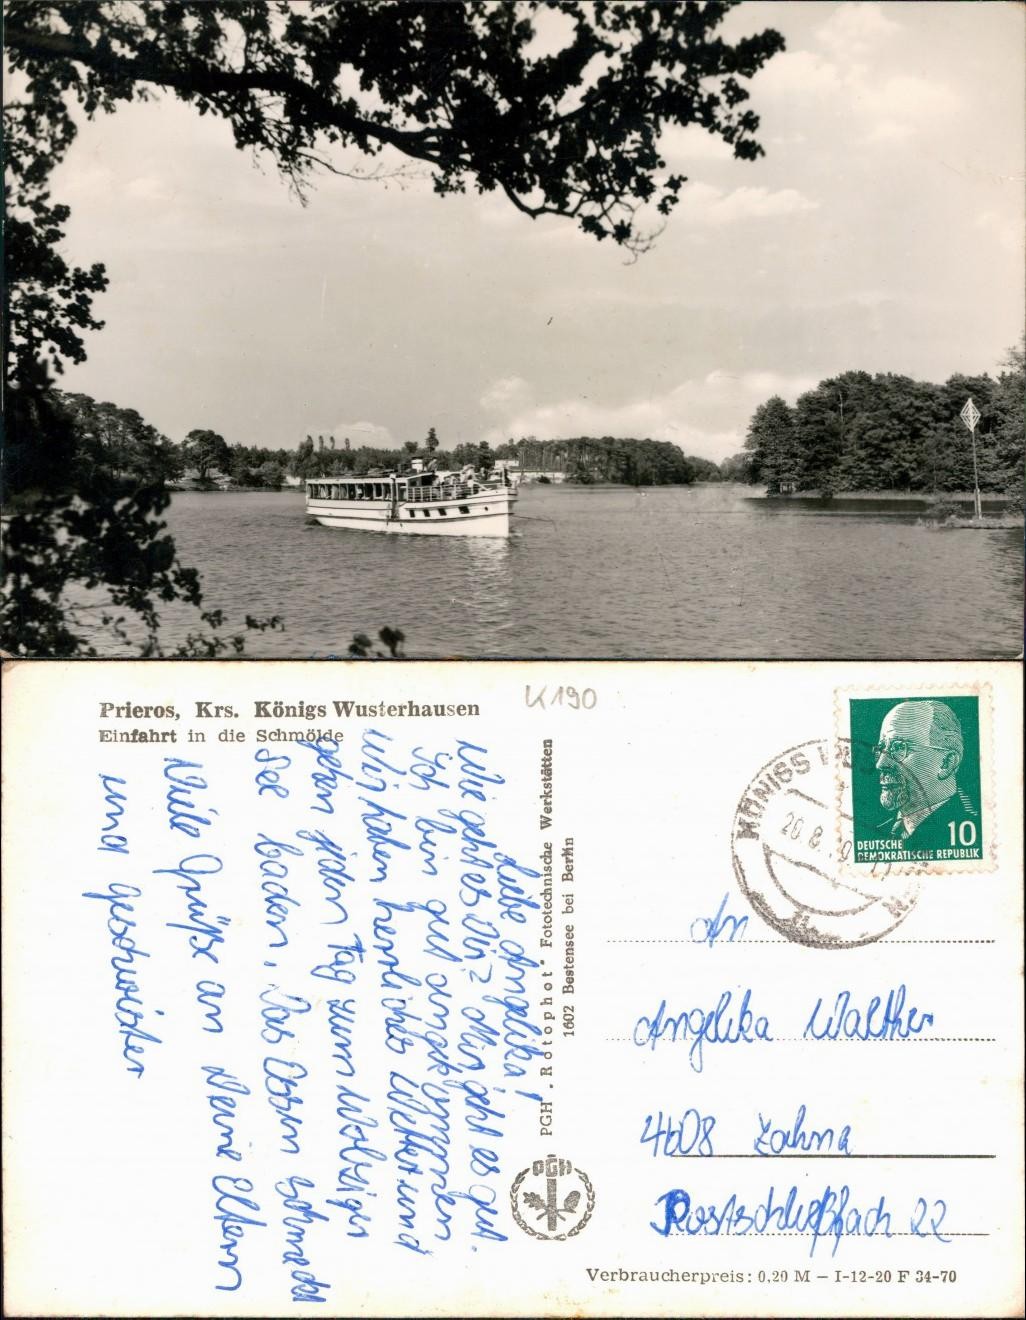 Prieros, Krs. Königs Wusterhausen
Einfahrt in die Schmölde
K190
Liebe Angelika!
Wie geht es Dir? Mir geht es gut.
Ich bin gut angekommen
Wir haben herrliches Wetter und
gehen jeden Tag zum Wolziger
See baden. Das Essen schmeckt
Viele Grüße an Deine Eltern
und Geschwister
PGH „Rotophot" Fototechnische Werkstätten
1602 Bestensee bei Berlin
PGH
DEUTSCHE
DEMOKRATISCHE REPUBLIK
10
KÖNIGS
20.8.
An
Angelika Walther
4608 Zahna
Postschließfach 22
Verbraucherpreis: 0,20 M – I-12-20 F 34-70